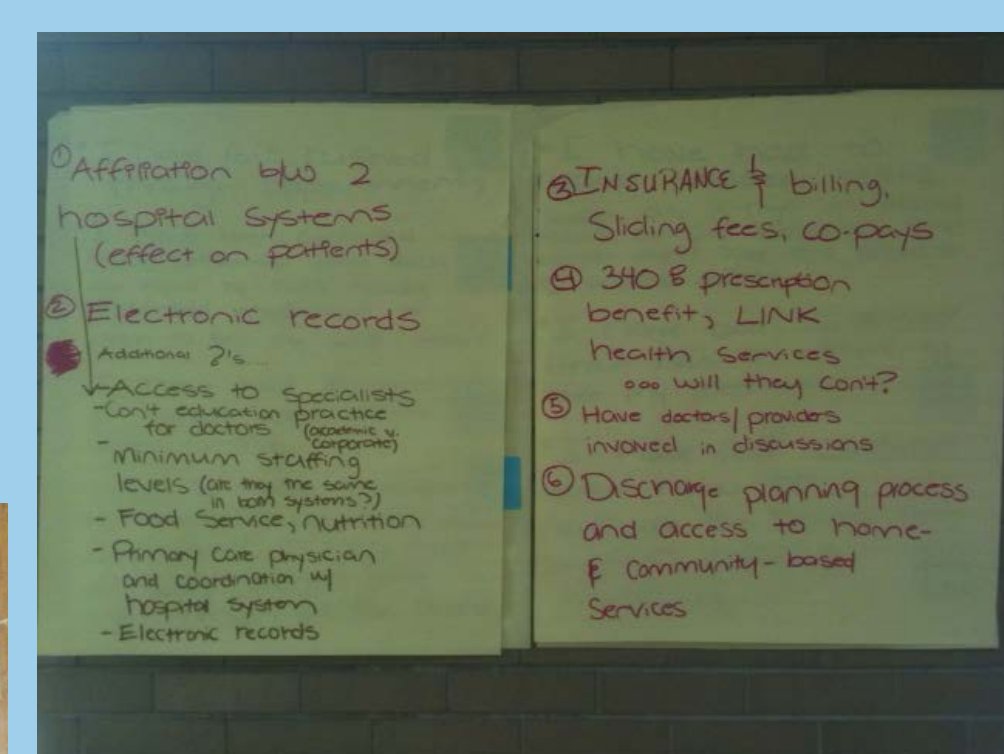 ① Affiliation b/w 2
hospital systems
(effect on patients)
② Electronic records
Additional ?'s...
Access to specialists
- Con't education practice
for doctors (academic v.
corporate)
- Minimum staffing
levels (are they the same
in both systems?)
- Food Service, nutrition
- Primary care physician
and coordination w/
hospital system
- Electronic records
③ INSURANCE & billing,
Sliding fees, co-pays
④ 340 B prescription
benefit, LINK
health services
ooo will they con't?
⑤ Have doctors/providers
involved in discussions
⑥ Discharge planning process
and access to home-
& community-based
Services